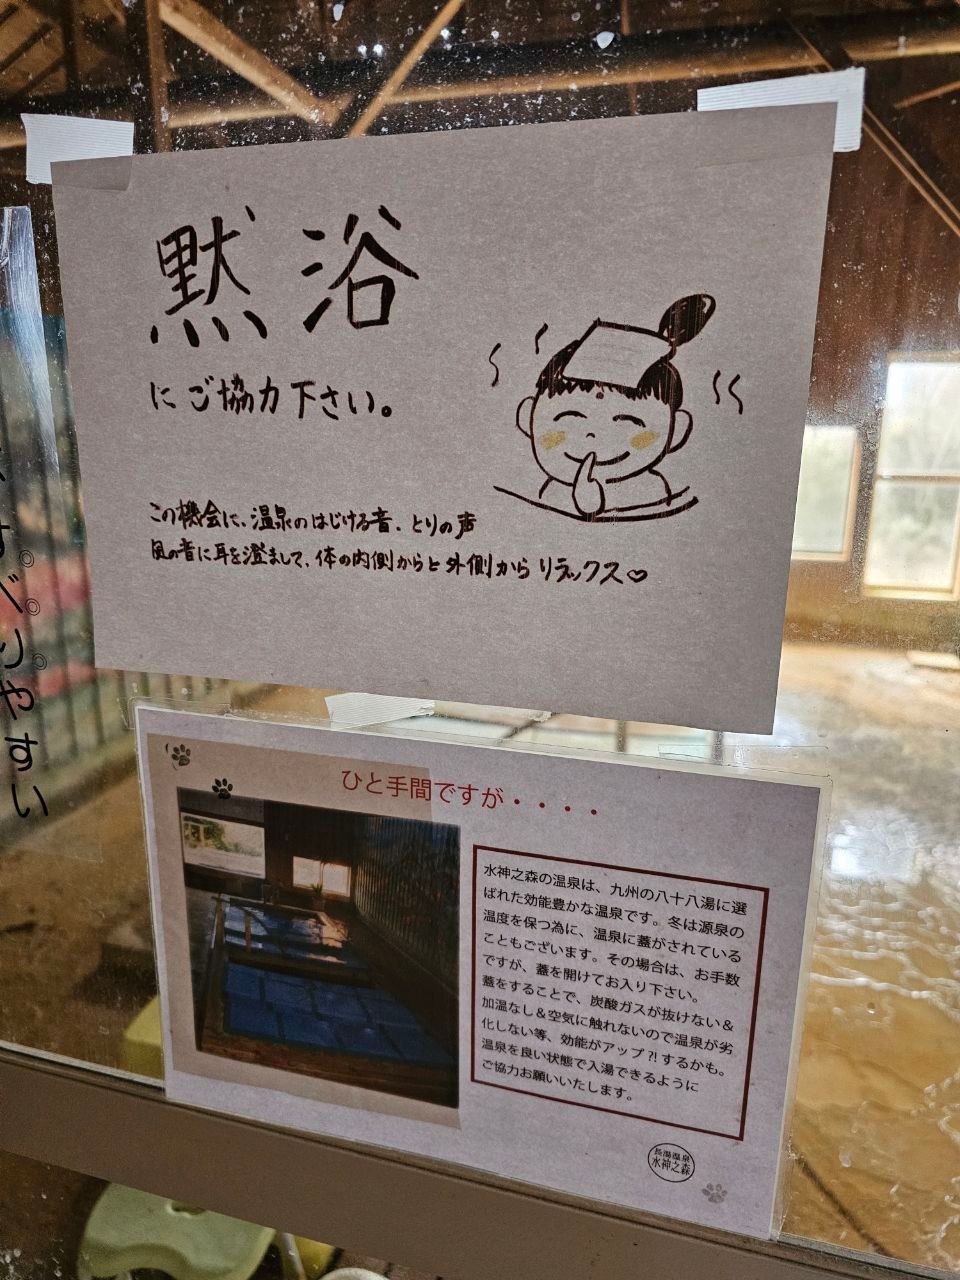 黙浴
にご協力下さい。
この機会に、温泉のはじける音、とりの声
風の音に耳を澄まして、体の内側からと外側からリラックス♡
す。べりやすい
ひと手間ですが・・・・
水神之森の温泉は、九州の八十八湯に選
ばれた効能豊かな温泉です。冬は源泉の
温度を保つ為に、温泉に蓋がされている
こともございます。その場合は、お手数
ですが、蓋を開けてお入り下さい。
蓋をすることで、炭酸ガスが抜けない＆
加温なし＆空気に触れないので温泉が劣
化しない等、効能がアップ⁈するかも。
温泉を良い状態で入湯できるように
ご協力お願いいたします。
長湯温泉
水神之森